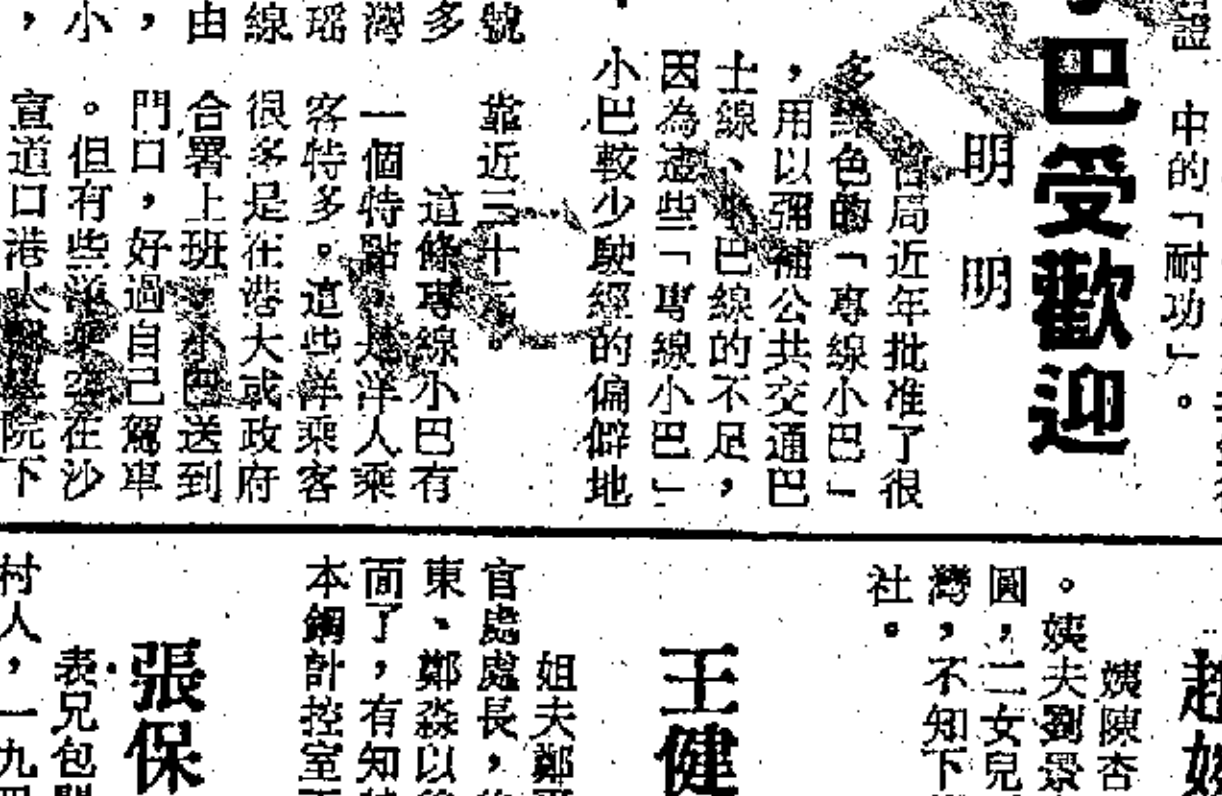 證　中的「耐功」。
巴受歡迎
明明
當局近年批准了很
多綠色的「專線小巴」
，用以彌補公共交通巴
士線、小巴線的不足，
因為這些「專線小巴」
小巴較少駛經的偏僻地
號　靠近三十年。
多　這條專線小巴有
灣　一個特點，是洋人乘
瑶　客特多。這些洋乘客
線　很多是在港大或政府
由　合署上班，小巴送到
，　門口，好過自己駕車
小　。但有些洋乘客在沙
，　宣道口港大醫學院下
趙
姨陳杏
。姨夫劉景
圓，二女兒
灣，不知下
社。
王健
姐夫鄭
官處處長，
東、鄭淼以
面了，有知
本鋼計控室
張保
表兄包
村人，一九四